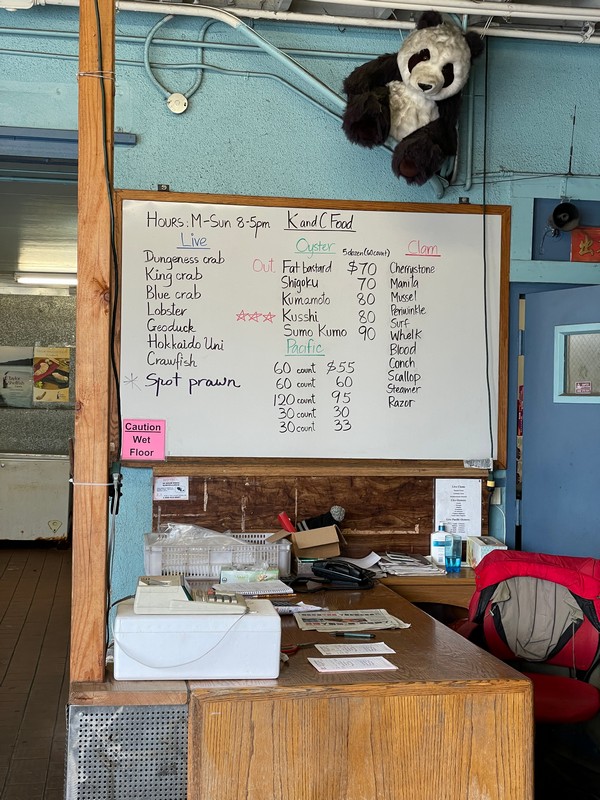 Hours: M-Sun 8-5pm K and C Food
Live
Dungeness crab
King crab
Blue crab
Lobster
Geoduck
Hokkaido Uni
Crawfish
Spot prawn
Oyster 5 dozen (60 count)
Out Fat bastard $70
Shigoku 70
Kumamoto 80
Kusshi 80
Sumo Kumo 90
Pacific
60 count $55
60 count 60
120 count 95
30 count 30
30 count 33
Clam
Cherrystone
Manila
Mussel
Periwinkle
Surf
Whelk
Blood
Conch
Scallop
Steamer
Razor
Caution
Wet
Floor
出